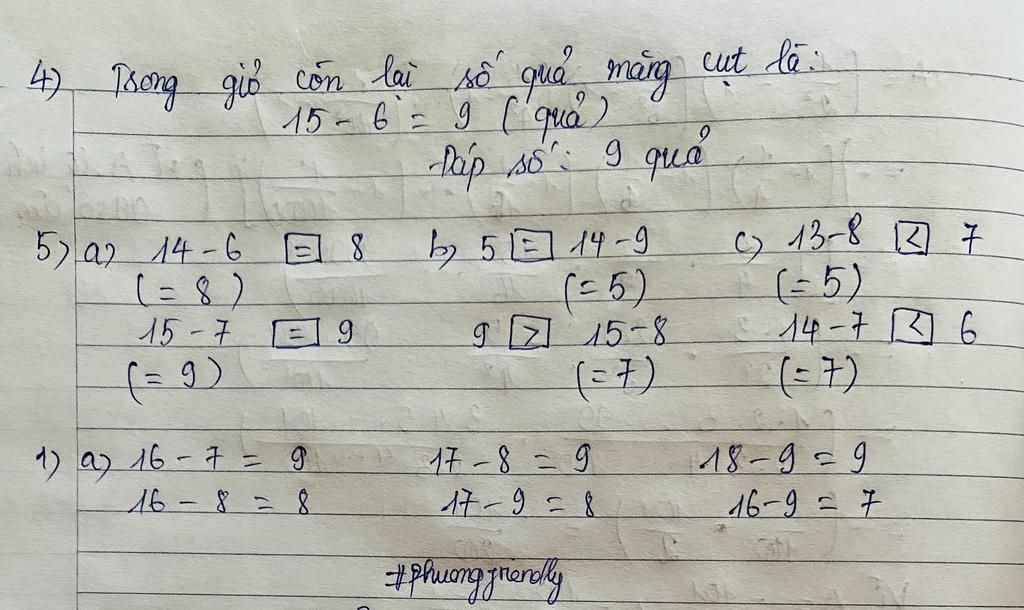 4) Trong giỏ còn lại số quả măng cụt là:
15 - 6 = 9 (quả)
Đáp số: 9 quả
5) a) 14 - 6 = 8 b) 5 = 14 - 9 c) 13 - 8 < 7
(= 8) (= 5) (= 5)
15 - 7 = 9 9 > 15 - 8 14 - 7 < 6
(= 9) (= 7) (= 7)
1) a) 16 - 7 = 9 17 - 8 = 9 18 - 9 = 9
16 - 8 = 8 17 - 9 = 8 16 - 9 = 7
#phuongfriendly